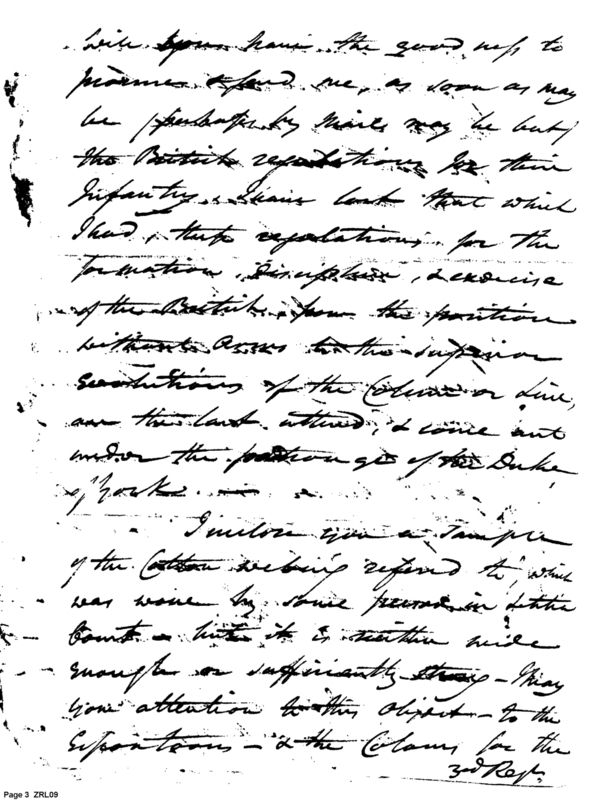 Will you have the good ness to
procure & send me, as soon as may
be (perhaps by Mail may be best)
the British regulations for their
Infantry. I have lost that which
I had, these regulations for the
formation, discipline, & exercise
of the British from the position
without Arms to the superior
evolutions of the Column or Line,
are the last altered, & came out
under the patronage of the Duke
of York. —
I inclose you a Sample
of the Cotton webing refered to, which
was wove by some person in
but it is neither wide
enough or sufficiently strong — I pray
your attention to this object — to the
Espontoons — & the Colours for the
3rd Regt.
Page 3 ZRL09